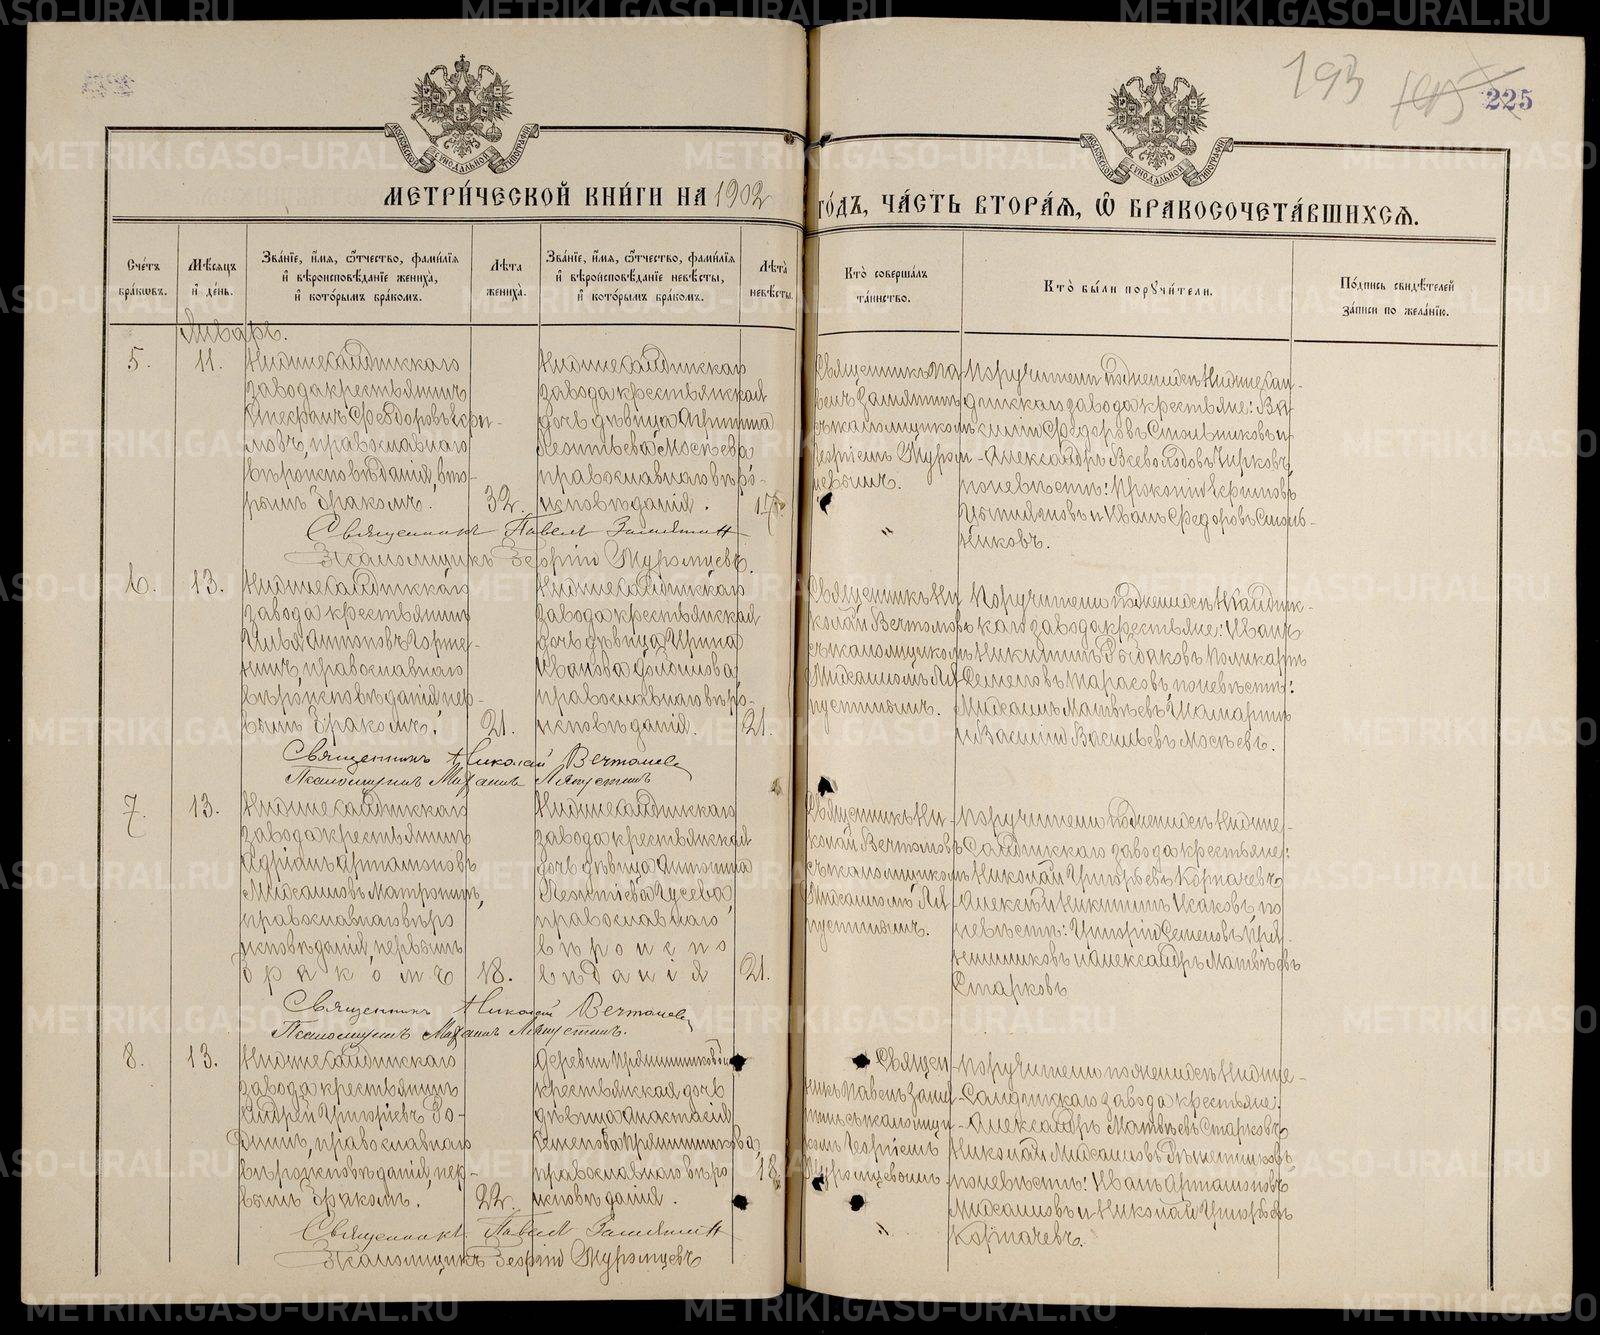 193
225
МОСКОВСКОЙ СѴНОДАЛЬНОЙ ТИПОГРАФІИ
МОСКОВСКОЙ СѴНОДАЛЬНОЙ ТИПОГРАФІИ
МЕТРИ́ЧЕСКОЙ КНИ́ГИ НА 1902
ГО́ДЪ, ЧА́СТЬ ВТОРА́Я, Ѽ БРАКОСОЧЕТА́ВШИХСѦ.
Сче́тъ бра́кѡвъ.
Мѣ́сяцъ и҆ де́нь.
Зва́нїе, и҆́мя, ѻ҆́тчество, фами́лїя и҆ вѣроисповѣ́данїе жениха̀, и҆ кото́рымъ бра́комъ.
Лѣ́та жениха̀.
Зва́нїе, и҆́мя, ѻ҆́тчество, фами́лїя и҆ вѣроисповѣ́данїе невѣ́сты, и҆ кото́рымъ бра́комъ.
Лѣ́та невѣ́сты.
Кто̀ соверша́лъ та́инство.
Кто̀ бы́ли порꙋчи́тели.
По́дпись свидѣ́телей за́писи по жела́нїю.
Январь.
5.
11.
Нижнесалдинскаго
завода крестьянинъ
православнаго
вѣроисповѣданія, вто-
рымъ бракомъ.
32.
Нижнесалдинскаго
завода крестьянская
дочь дѣвица
Леонтьева Мосѣева
православнаго вѣро-
исповѣданія.
17.
Священникъ Па-
велъ Замятинъ
съ псаломщикомъ
Георгіемъ Муром-
цевымъ.
Поручители подписалсь Нижнесал-
динскаго завода крестьяне: Ва-
силій Ѳедоровъ Стольниковъ и
Александръ Всеволодовъ Чирковъ,
по невѣстѣ: Прокопій
и Иванъ Ѳедоровъ Столь-
никовъ.
Священникъ Павелъ Замятинъ
Псаломщикъ Георгій Муромцевъ.
6.
13.
Нижнесалдинскаго
завода крестьянинъ
Илья Антоновъ Горше-
нинъ, православнаго
вѣроисповѣданія, пер-
вымъ бракомъ.
21.
Нижнесалдинскаго
завода крестьянская
дочь дѣвица Ирина
Иванова
православнаго вѣро-
исповѣданія.
21.
Священникъ Ни-
колай Вечтомовъ
съ псаломщикомъ
Михаиломъ Ля-
пустинымъ.
завода крестьяне: Иванъ
Никитинъ Рыбаковъ, Поликарпъ
Семеновъ Тарасовъ, по невѣстѣ:
Михаилъ Матвѣевъ Шамаринъ
и Василій Васильевъ Мосѣевъ.
Священникъ Николай Вечтомовъ
Псаломщикъ Михаилъ Ляпустинъ
7.
13.
Нижнесалдинскаго
завода крестьянинъ
Адріанъ Артамоновъ
Михаиловъ Матронинъ,
православнаго вѣро
исповѣданія, первымъ
бракомъ
18.
Нижнесалдинскаго
завода крестьянская
дочь дѣвица Антонина
Леонтіева Гусева
православнаго
вѣроиспо
вѣданія
21.
Священникъ Ни-
колай Вечтомовъ
съ псаломщикомъ
Михаиломъ Ля-
пустинымъ.
Салдинскаго завода крестьяне:
Николай Григорьевъ Корпачевъ
Алексѣй Никитинъ Исаковъ, по
невѣстѣ: Григорій Семеновъ Пря-
нишниковъ и Александръ Матвѣевъ
Старковъ
Священникъ Николай Вечтомовъ
Псаломщикъ Михаилъ Ляпустинъ.
8.
13.
Нижнесалдинскаго
завода крестьянинъ
Андрей Григоріевъ Ро-
динъ, православнаго
вѣроисповѣданія, пер-
вымъ бракомъ.
22.
Деревни Прянишниковой
крестьянская дочь
дѣвица Анастасія
Семенова Прянишникова,
православнаго вѣро
исповѣданія.
18.
Священ-
никъ Павелъ Замя-
тинъ съ псаломщи-
комъ Георгіемъ
Муромцевымъ.
Салдинскаго завода крестьяне:
Александръ Матвѣевъ Старковъ
Николай Михаиловъ Рѣшетниковъ,
по невѣстѣ: Иванъ Артамоновъ
Михаиловъ и Николай Григорьевъ
Корпачевъ.
Священникъ Павелъ Замятинъ
Псаломщикъ Георгій Муромцевъ
METRIKI.GASO-URAL.RU